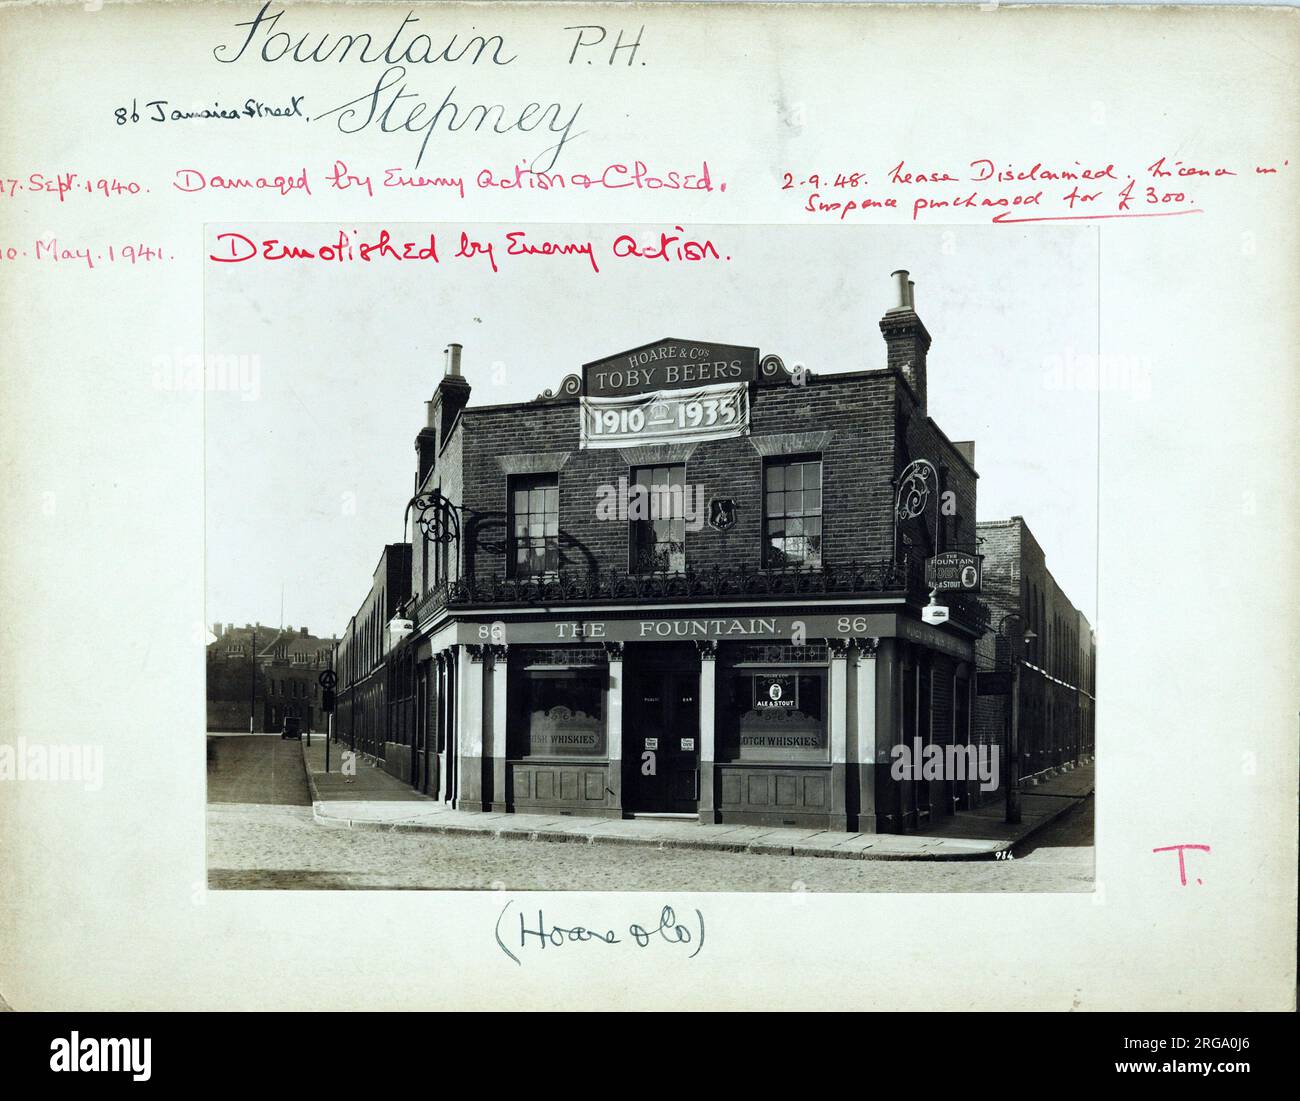 Fountain P.H.
86 Jamaica Street, Stepney
17. Sept. 1940. Damaged by Enemy Action & Closed.
2.9.48. Lease Disclaimed. Licence in
Suspence purchased for £300.
10. May. 1941. Demolished by Enemy Action.
HOARE & Co's
TOBY BEERS
1910 1935
THE
FOUNTAIN
TOBY
ALE & STOUT
86 THE FOUNTAIN. 86
HOARE & Co's
TOBY
ALE & STOUT
PUBLIC BAR
ISH WHISKIES
OTCH WHISKIES
984
T.
(Hoare & Co)
alamy
alamy
Image ID: 2RGA0J6
www.alamy.com